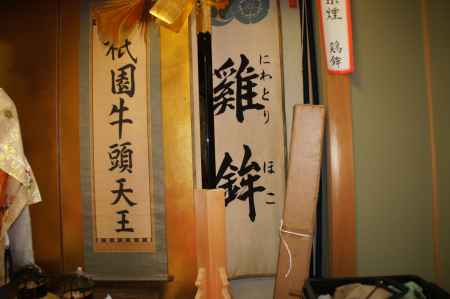 祇園牛頭天王
雞鉾
にわとり
ほこ
煙
鶏鉾